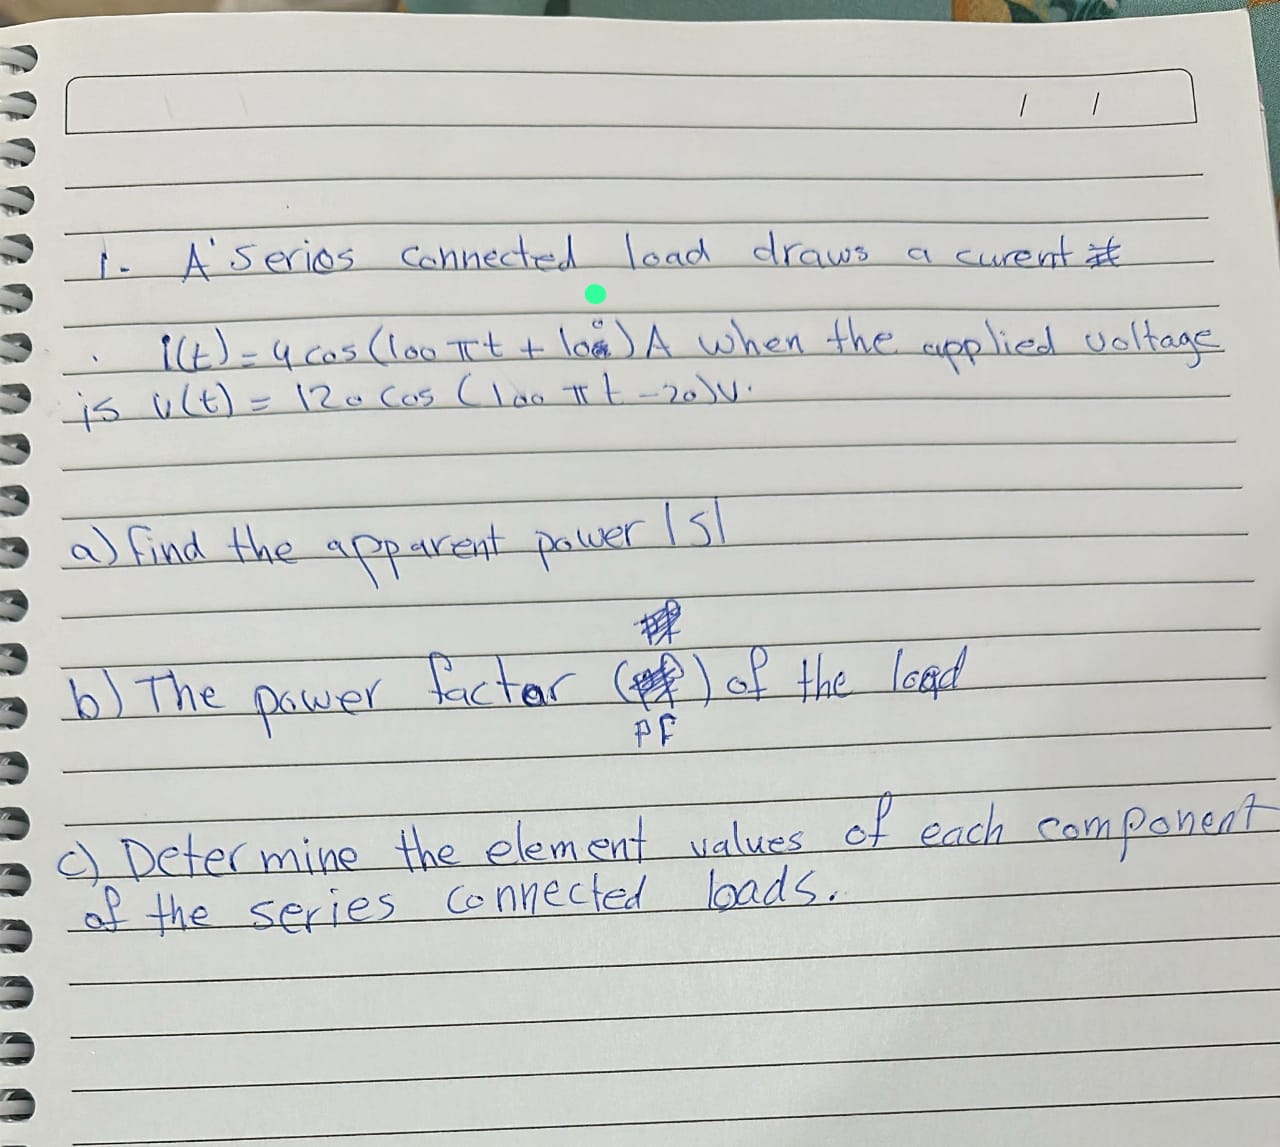 1. A series connected load draws a curent
i(t) = 4 cos (100 πt + 10°) A when the applied voltage
is v(t) = 120 cos (100 πt - 20) v.
a) find the apparent power |s|
b) The power factor ( ) of the load
PF
c) Determine the element values of each component
of the series connected loads.